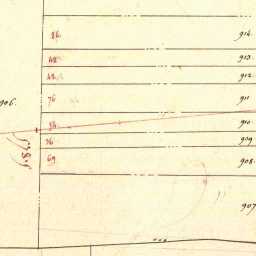 86. 914.
42. 913.
42. 912.
906. 76 911
84. 910.
76 909
69 908.
907